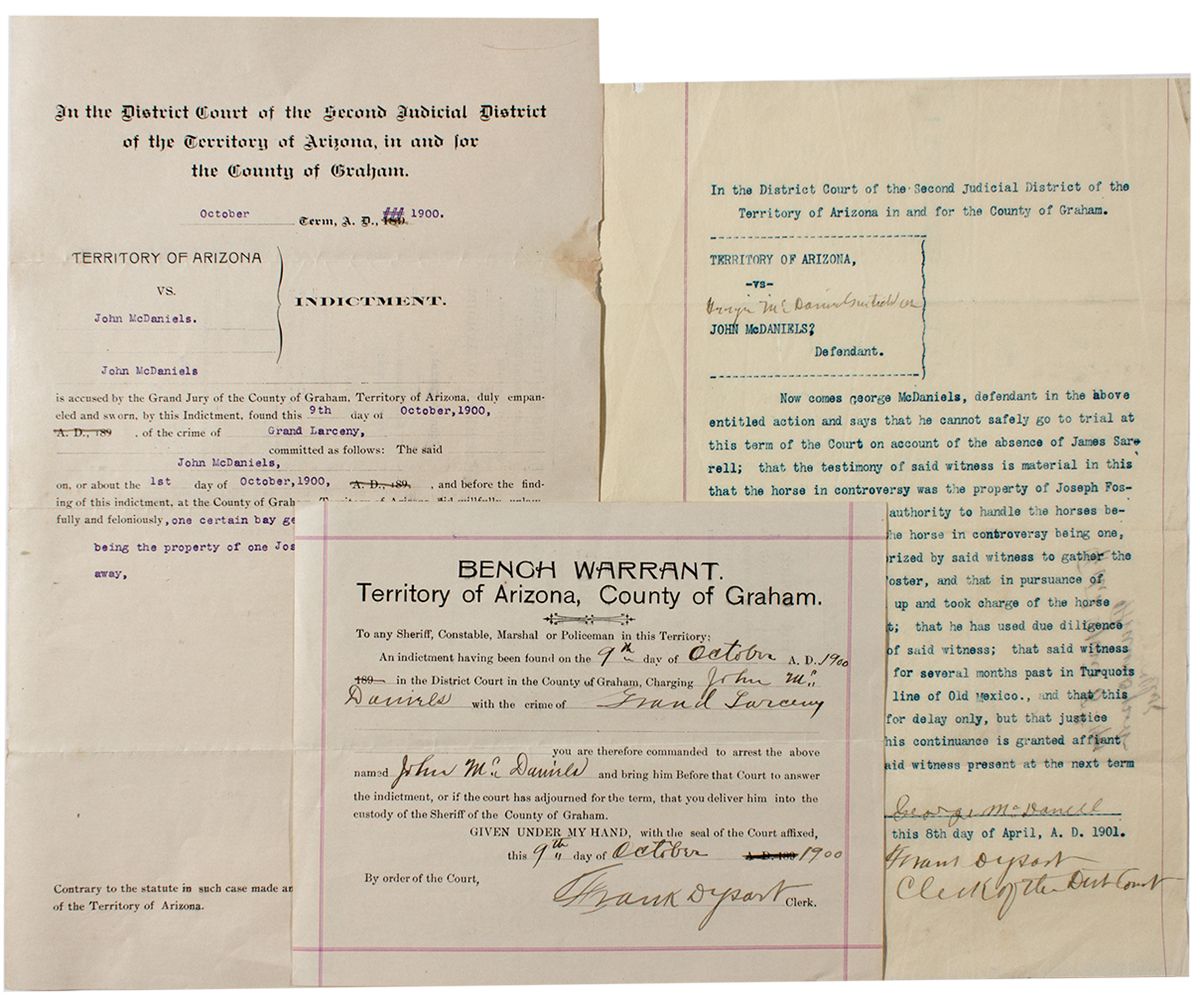 In the District Court of the Second Judicial District
of the Territory of Arizona, in and for
the County of Graham.
October Term, A. D., 189 . 1900.
TERRITORY OF ARIZONA
VS.
John McDaniels.
INDICTMENT.
John McDaniels
is accused by the Grand Jury of the County of Graham, Territory of Arizona, duly empan-
eled and sworn, by this Indictment, found this 9th day of October,1900,
A. D., 189 , of the crime of Grand Larceny,
committed as follows: The said
John McDaniels,
on, or about the 1st day of October,1900, A. D., 189, , and before the find-
ing of this indictment, at the County of Graham, Territory of Arizona did willfully, unlaw-
fully and feloniously, one certain bay ge
being the property of one Jos
away,
Contrary to the statute in such case made an
of the Territory of Arizona.
BENCH WARRANT.
Territory of Arizona, County of Graham.
To any Sheriff, Constable, Marshal or Policeman in this Territory:
An indictment having been found on the 9th day of October A. D. 1900
189 in the District Court in the County of Graham, Charging John Mc
Daniels with the crime of Grand Larceny
you are therefore commanded to arrest the above
named John Mc Daniels and bring him Before that Court to answer
the indictment, or if the court has adjourned for the term, that you deliver him into the
custody of the Sheriff of the County of Graham.
GIVEN UNDER MY HAND, with the seal of the Court affixed,
this 9th day of October A. D. 189 1900
By order of the Court,
Frank Dysart Clerk.
In the District Court of the Second Judicial District of the
Territory of Arizona in and for the County of Graham.
TERRITORY OF ARIZONA,
-vs-
George McDaniels
JOHN McDANIELS,
Defendant.
Now comes george McDaniels, defendant in the above
entitled action and says that he cannot safely go to trial at
this term of the Court on account of the absence of James Sar-
rell; that the testimony of said witness is material in this
that the horse in controversy was the property of Joseph Fos-
authority to handle the horses be-
he horse in controversy being one,
rized by said witness to gather the
oster, and that in pursuance of
up and took charge of the horse
t; that he has used due diligence
of said witness; that said witness
for several months past in Turquois
line of Old Mexico., and that this
for delay only, but that justice
his continuance is granted affiant
aid witness present at the next term
George McDaniell
this 8th day of April, A. D. 1901.
Frank Dysart
Clerk of the Dist Court